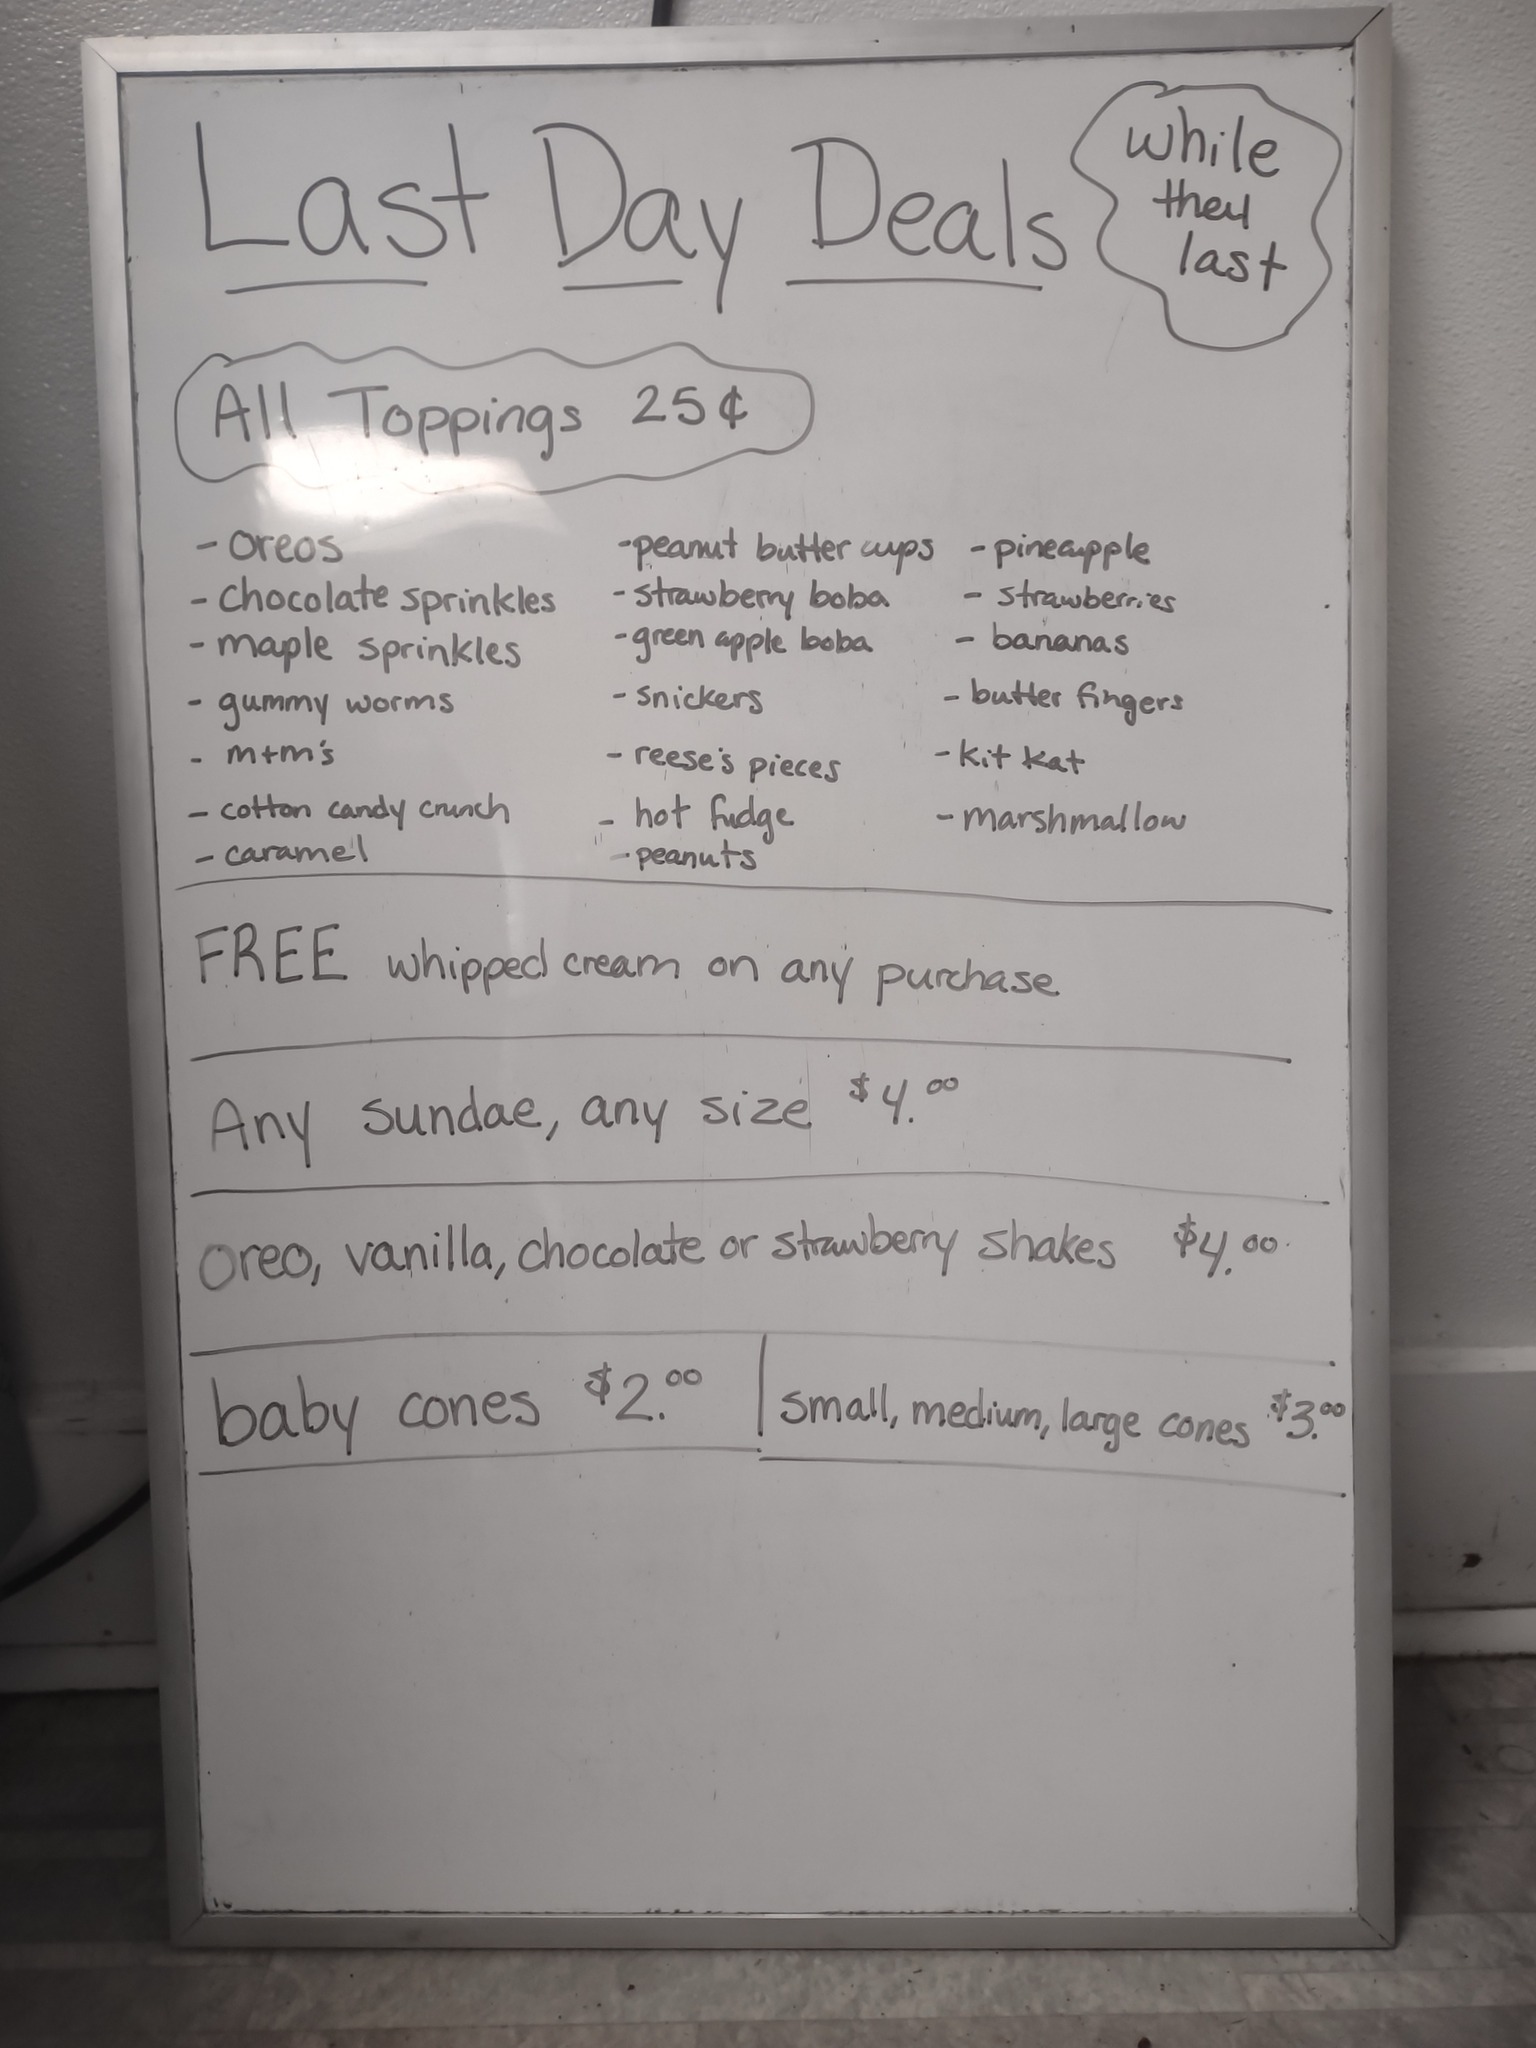 Last Day Deals
while
they
last
All Toppings 25¢
- oreos
- chocolate sprinkles
- maple sprinkles
- gummy worms
- m+m's
- cotton candy crunch
- caramel
- peanut butter cups
- strawberry boba
- green apple boba
- snickers
- reese's pieces
- hot fudge
- peanuts
- pineapple
- strawberries
- bananas
- butter fingers
- kit kat
- marshmallow
FREE whipped cream on any purchase
Any sundae, any size $4.00
oreo, vanilla, chocolate or strawberry shakes $4.00
baby cones $2.00
small, medium, large cones $3.00